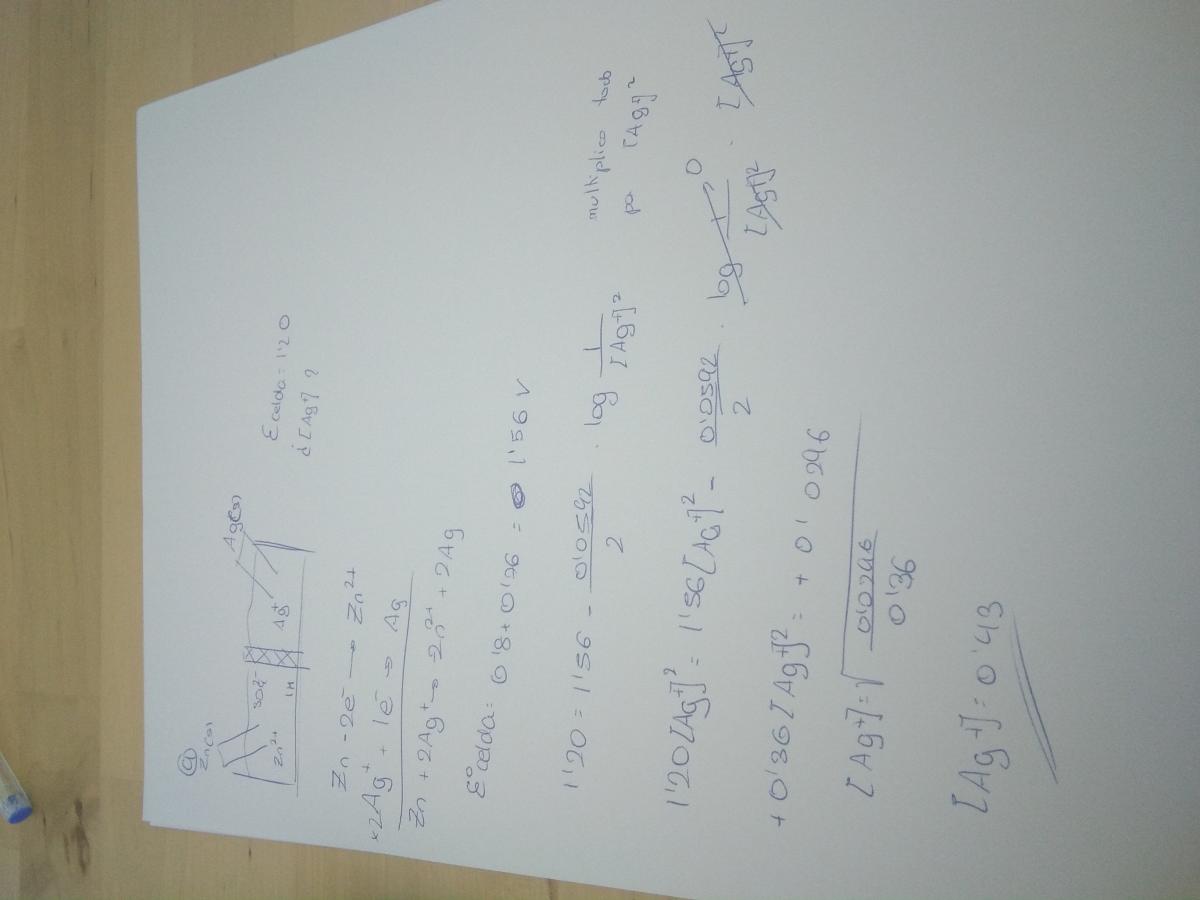 a
Zn(s)
Ag(s)
Zn²⁺ SO₄²⁻ Ag⁺
1M
Ecelda = 1'20
¿[Ag⁺]?
Zn - 2e⁻ → Zn²⁺
×2Ag⁺ + 1e⁻ → Ag
Zn + 2Ag⁺ → Zn²⁺ + 2Ag
E°celda = 0'8 + 0'76 = 1'56 V
1'20 = 1'56 - 0'0592/2 · log 1/[Ag⁺]² multiplico todo
por [Ag⁺]²
1'20[Ag⁺]² = 1'56[Ag⁺]² - 0'0592/2 · log 1/[Ag⁺]² · [Ag⁺]² 0
+ 0'36[Ag⁺]² = + 0'0296
[Ag⁺] = √0'0296/0'36
[Ag⁺] = 0'43